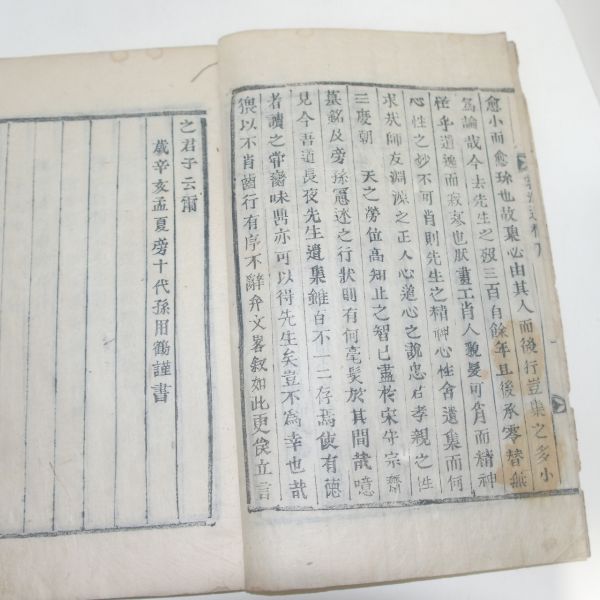 愈小而愈珍也故集必由其人而後行豈集之多小
爲論哉今去先生之歿三百有餘年且後承零替無
徑乎遺逸而寂寥也肰畫工肖人貌髮可肖而精神
心性之妙不可肖則先生之精神心性舍遺集而何
求狀師友淵源之正人心道心之說忠君孝親之性
三度朝天之勞位高知止之智已盡於宋守宗齋
墓銘及旁孫冕述之行狀則有何毫髮於其間哉噫
見今吾道長夜先生遺集雖百不一二存焉使有德
者讀之常臠味鼎亦可以得先生矣豈不爲幸也哉
猥以不肖齒行有序不辭弁文畧叙如此更俟立言
之君子云爾
歲辛亥孟夏旁十代孫用鶴謹書